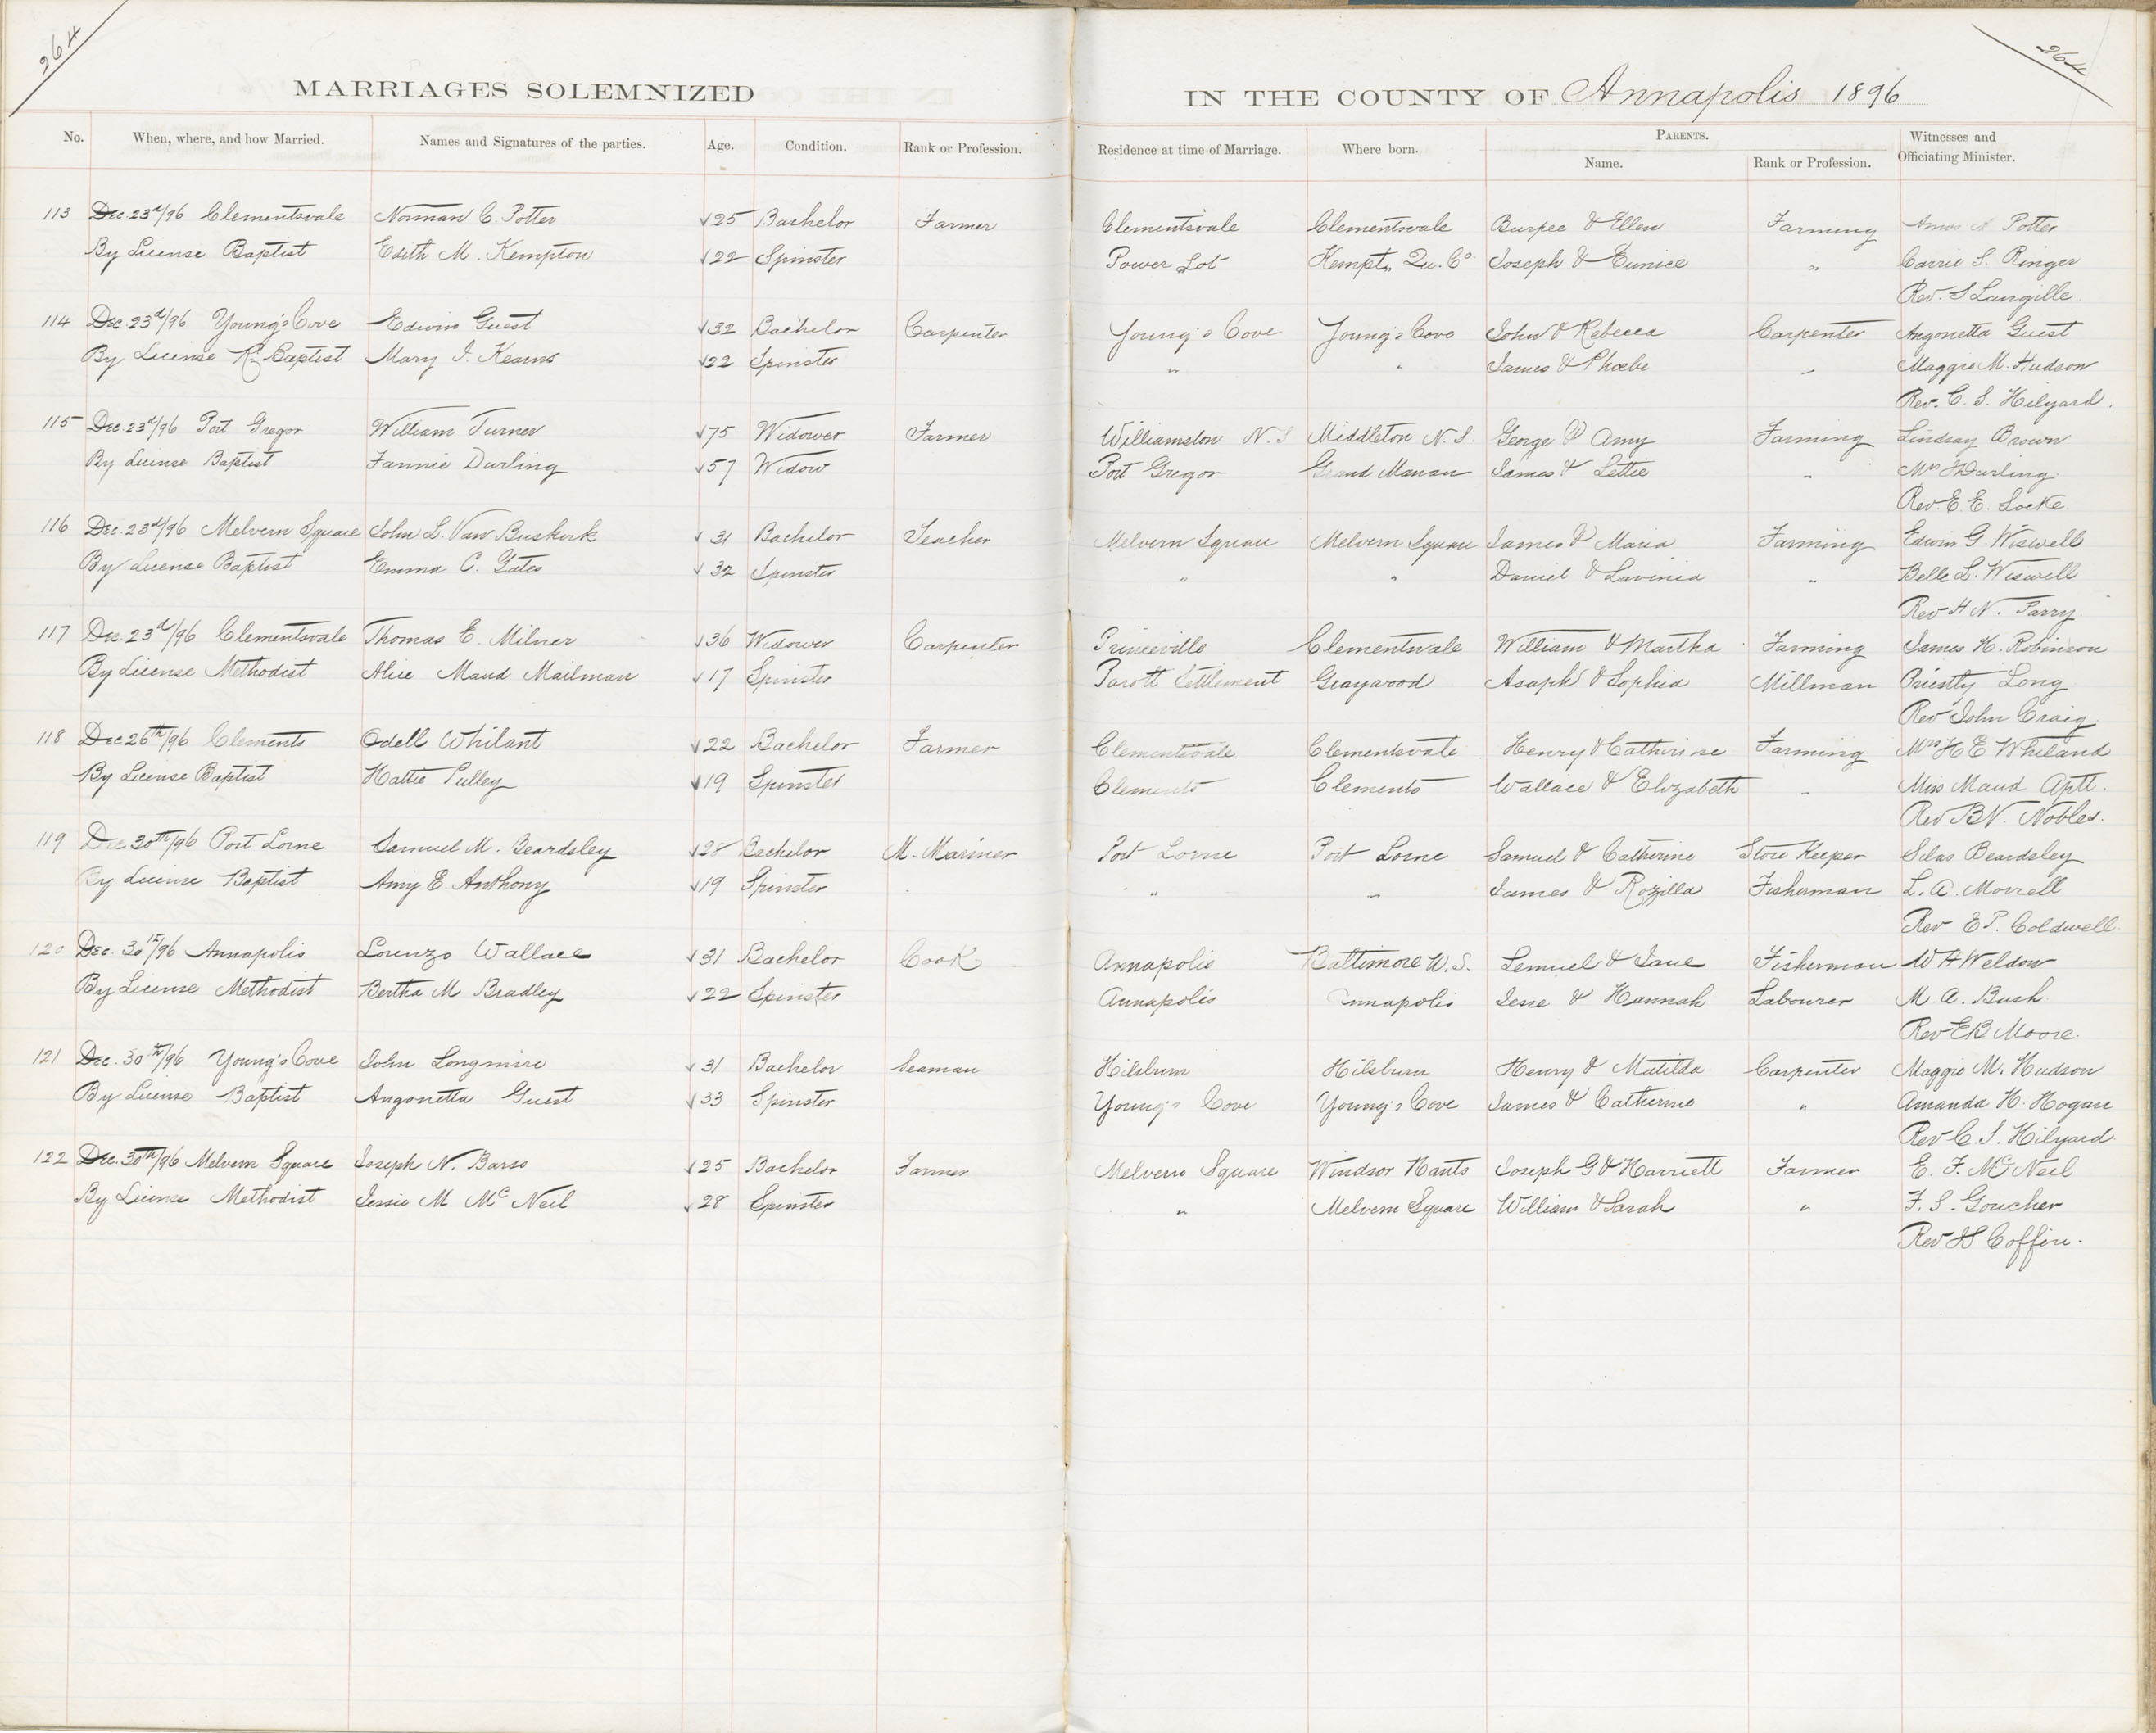 264
264
MARRIAGES SOLEMNIZED
IN THE COUNTY OF Annapolis 1896
No. When, where, and how Married. Names and Signatures of the parties. Age. Condition. Rank or Profession. Residence at time of Marriage. Where born. PARENTS. Name. Rank or Profession. Witnesses and Officiating Minister.
113 Dec. 23d/96 Clementsvale Norman C. Potter √25 Bachelor Farmer Clementsvale Clementsvale Burpee & Ellen Farming Amos A Potter
By License Baptist Edith M. Kempton √22 Spinster Power Lot Kempt, Qu. Co Joseph & Eunice " Carrie S. Ringer
Rev. S Langille
114 Dec. 23d/96 Young's Cove Edwin Guest √32 Bachelor Carpenter Young's Cove Young's Cove John & Rebecca Carpenter Angonetta Guest
By License Baptist Mary J. Kearns √22 Spinster " " James & Phoebe " Maggie M. Hudson
Rev. C. S. Hilyard.
115 Dec 23d/96 Port Gregor William Turner √75 Widower Farmer Williamston N.S Middleton N.S. George & Amy Farming Lindsay Brown
By License Baptist Fannie Durling √57 Widow Port Gregor Grand Manan James & Lettie " Durling
Rev. E. E. Locke.
116 Dec. 23d/96 Melvern Square John L. Van Buskirk √31 Bachelor Teacher Melvern Square Melvern Square James & Maria Farming Edwin G. Wiswell
By License Baptist Emma C. Gates √32 Spinster " " Daniel & Lavinia " Belle L. Wiswell
Rev H N. Parry.
117 Dec. 23d/96 Clementsvale Thomas E. Milner √36 Widower Carpenter Princeville Clementsvale William & Martha Farming James H. Robinson
By License Methodist Alice Maud Mailman √17 Spinster Parott Settlement Graywood Asaph & Sophia Millman Priestly Long
Rev John Craig
118 Dec 26th/96 Clements Odell Whilant √22 Bachelor Farmer Clementsvale Clementsvale Henry & Catherine Farming Mrs H E Whiland
By License Baptist Hattie Pulley √19 Spinster Clements Clements Wallace & Elizabeth " Miss Maud Aptt.
Rev B N. Nobles.
119 Dec 30th/96 Port Lorne Samuel M. Beardsley √28 Bachelor M. Mariner Port Lorne Port Lorne Samuel & Catherine Store Keeper Silas Beardsley
By License Baptist Amy E. Anthony √19 Spinster " " James & Rozilla Fisherman L. A. Morrell
Rev E P. Coldwell.
120 Dec. 30th/96 Annapolis Lorenzo Wallace √31 Bachelor Cook Annapolis Baltimore U.S. Lemuel & Jane Fisherman W H Weldon
By License Methodist Bertha M Bradley √22 Spinster Annapolis Annapolis Jesse & Hannah Labourer M. A. Bush
Rev E B Moore.
121 Dec. 30th/96 Young's Cove John Longmire √31 Bachelor Seaman Hilsburn Hilsburn Henry & Matilda Carpenter Maggie M. Hudson
By License Baptist Angonetta Guest √33 Spinster Young's Cove Young's Cove James & Catherine " Amanda H. Hogan
Rev C. S. Hilyard.
122 Dec. 30th/96 Melvern Square Joseph N. Barss √25 Bachelor Farmer Melvern Square Windsor Hants Joseph G & Harriett Farmer E. F. McNeil
By License Methodist Jessie M. McNeil √28 Spinster " Melvern Square William & Sarah " F. S. Goucher
Rev J S Coffin.